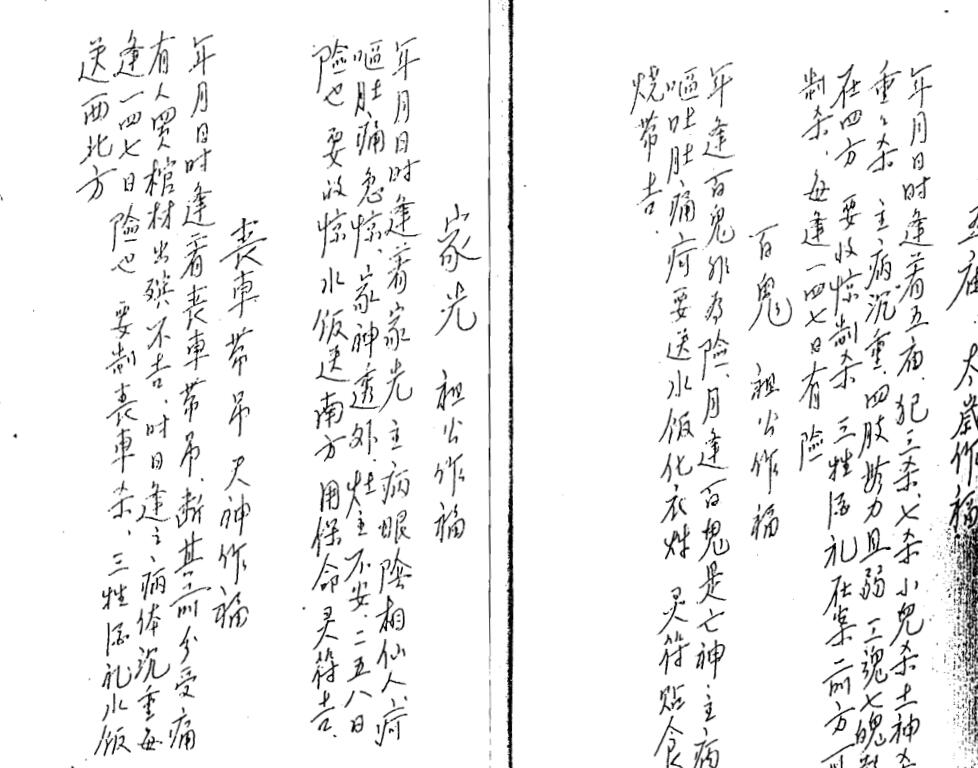 五庙、太岁作福
年月日时逢着五庙、犯三杀、七杀小儿杀土神
重々杀 主病沉重、四肢无力且弱 三魂七魄
在四方 要收惊制杀 三牲酒礼在案前方
制杀、每逢一四七日有险
百鬼 祖公作福
年逢百鬼非为险、月逢百鬼是亡神 主病
呕吐肚痛疴 要送水饭化衣 灵符贴食
烧带吉.
家先 祖公作福
年月日时逢着家先 主病眼阴相仙人、疴
呕肚痛急惊、家神透外、灶主不安、二五八日
险也 要收惊水饭送南方 用保命灵符吉.
丧車带吊 天神作福
年月日时逢着丧車带吊、断其前分受痛
有人買棺材出殡不吉、时日逢主、病体沉重每
逢一四七日 险也 要制丧車杀、三牲酒礼水饭
送西北方